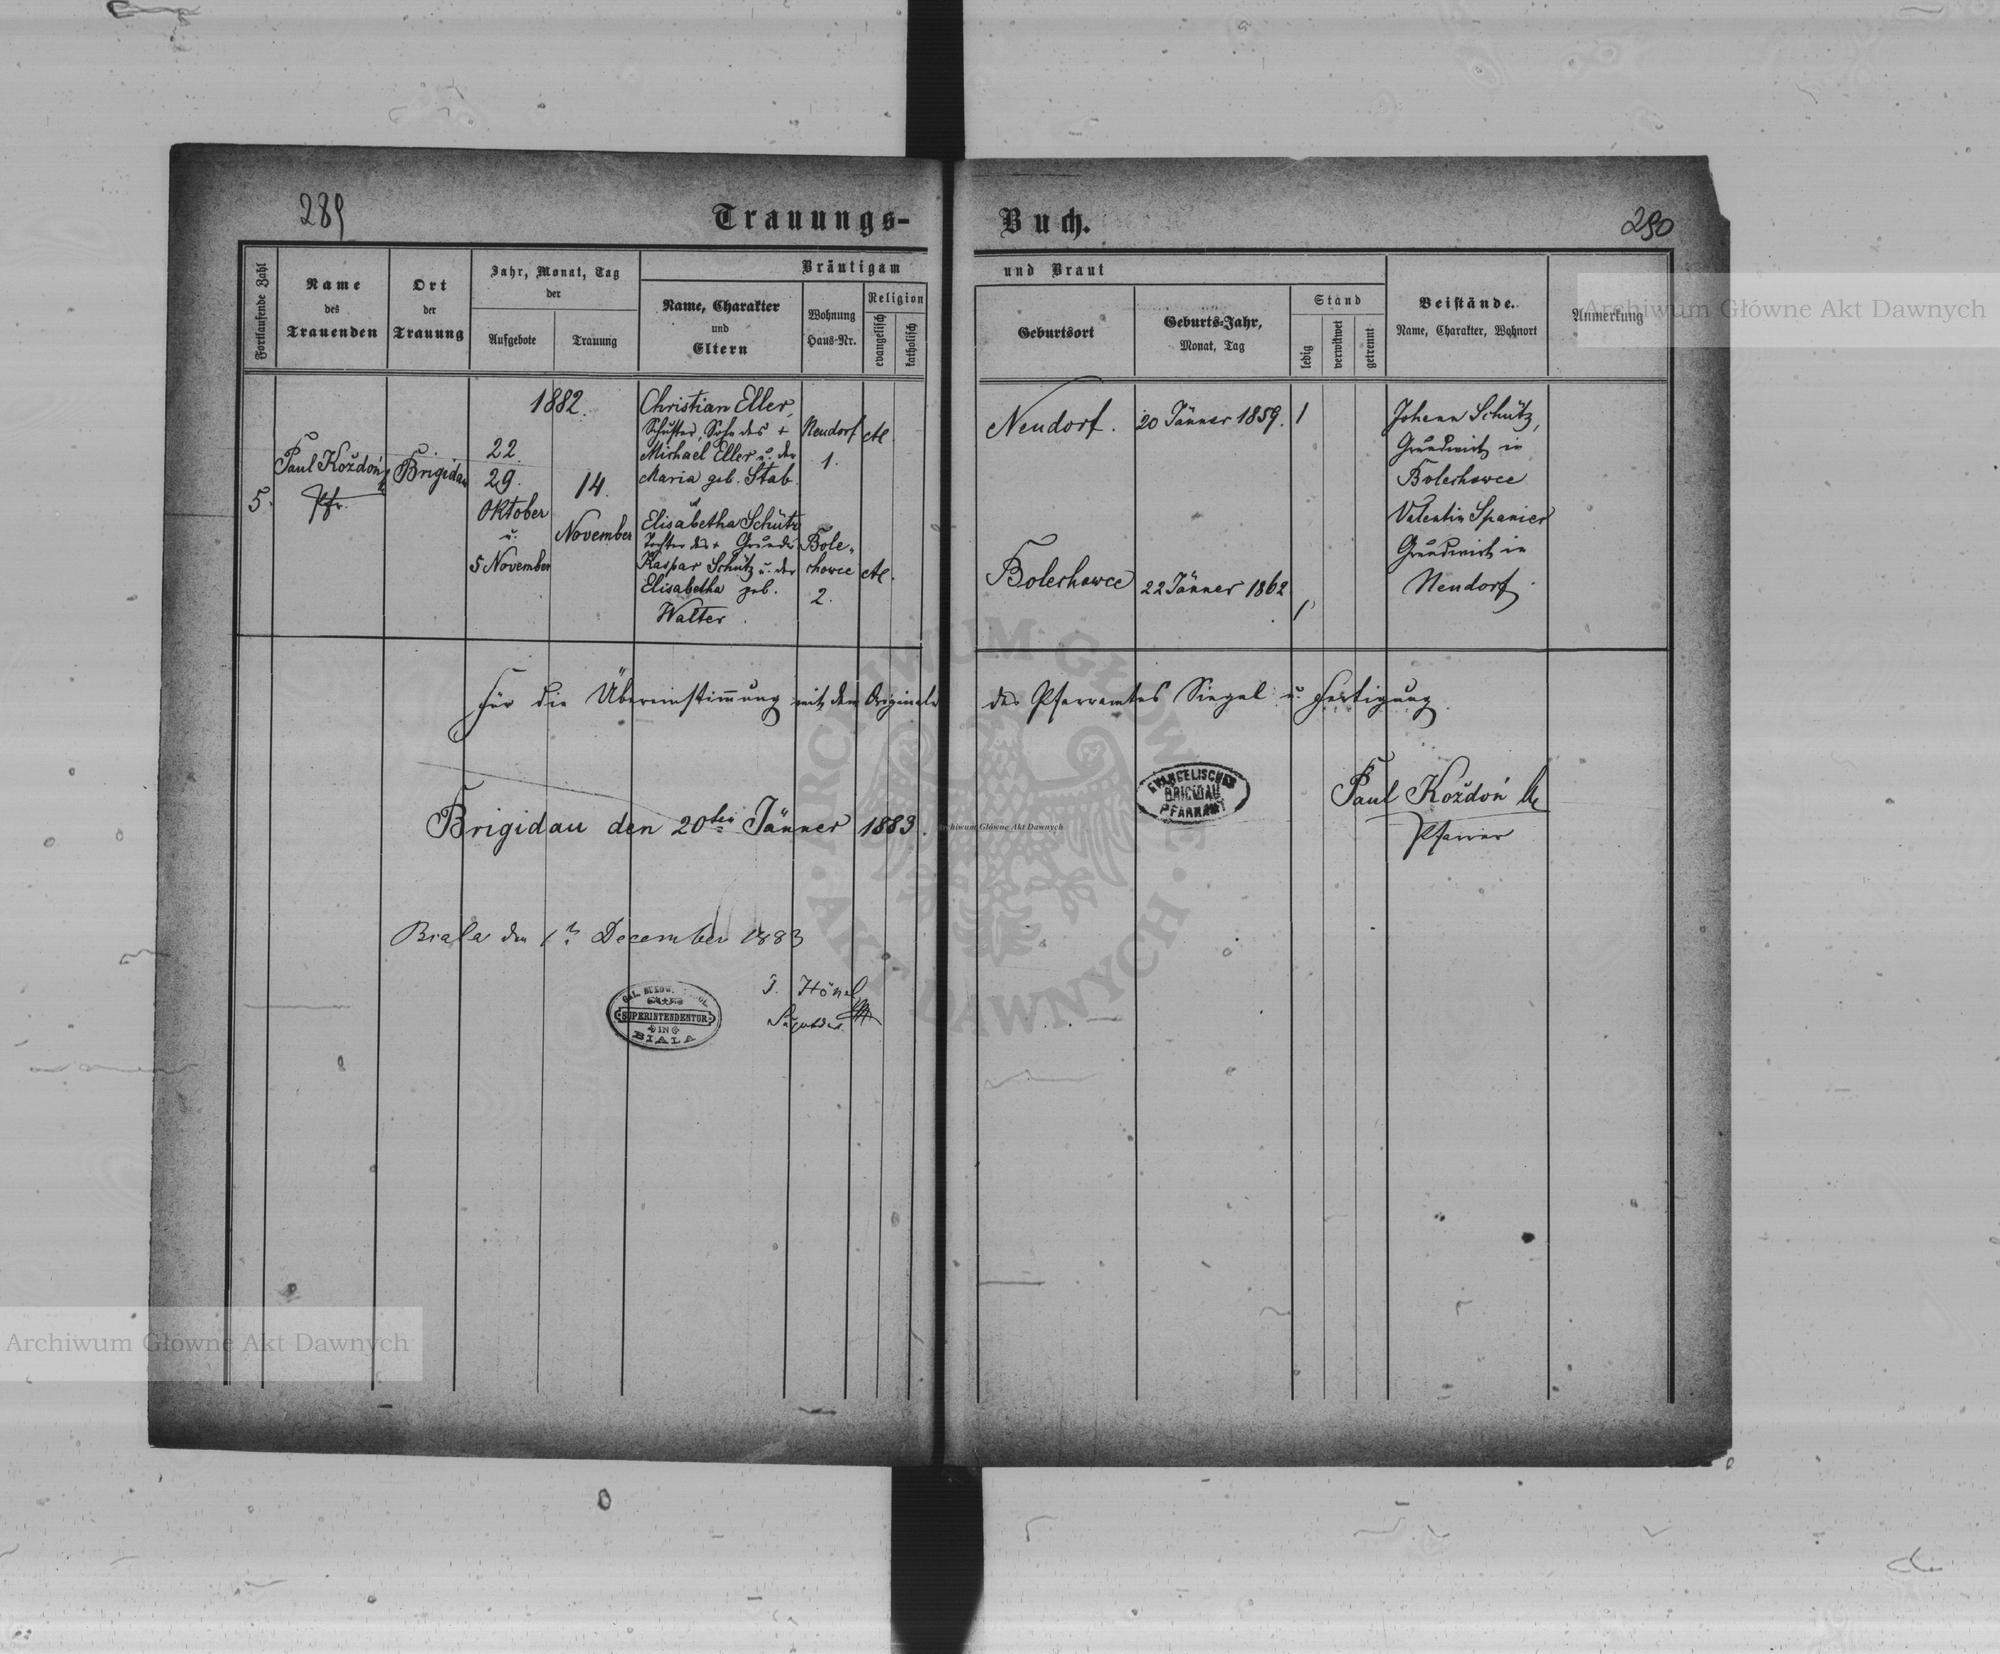 289
Trauungs-
Buch.
290
Fortlaufende Zahl
Name
des
Trauenden
Ort
der
Trauung
Jahr, Monat, Tag
der
Aufgebote
Trauung
Bräutigam
und Braut
Name, Charakter
und
Eltern
Wohnung
Haus-Nr.
Religion
evangelisch
katholisch
Geburtsort
Geburts-Jahr,
Monat, Tag
Stand
ledig
verwitwet
getrennt
Beistände.
Name, Charakter, Wohnort
Anmerkung
5.
Paul Koždoń
Pfr.
Brigidau
1882.
22.
29.
Oktober
u.
5 November
14.
November
Christian Eller,
Schuster, Sohn des +
Michael Eller u. der
Maria geb. Stab.
u
Elisabetha Schütz
Tochter des + Grundw
Kaspar Schütz u. der
Elisabetha geb.
Walter.
Neudorf
1.
Bole-
chowce
2.
Neudorf.
Bolechowce
20 Jänner 1859.
22 Jänner 1862
1
1
Johann Schütz,
Grundwirt in
Bolechowce
Valentin Spanier
Grundwirt in
Neudorf.
Für die Übereinstimmung mit dem Originale
des Pfarramtes Siegel u. Fertigung.
EVANGELISCHES
BRIGIDAU
PFARRAMT
Paul Koždoń
Pfarrer
Brigidau den 20ten Jänner 1883.
Biala den 1ten December 1883
J. Hönel
SUPERINTENDENTUR
IN
BIALA
Archiwum Główne Akt Dawnych
Archiwum Główne Akt Dawnych
Archiwum Główne Akt Dawnych
ARCHIWUM GŁÓWNE
AKT DAWNYCH